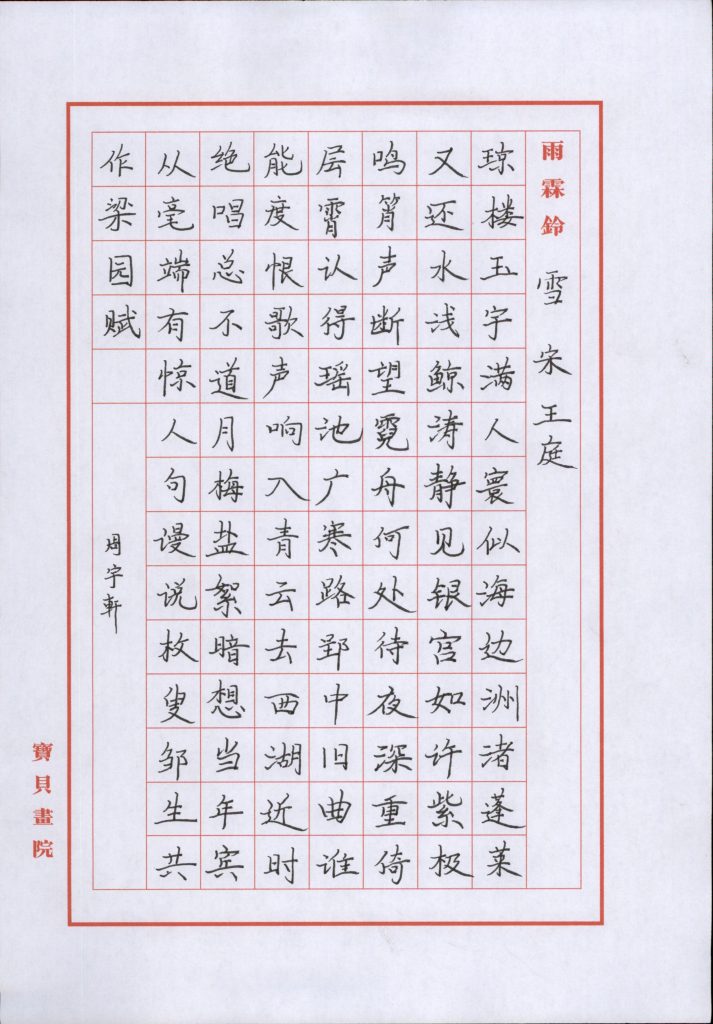 雨霖鈴 雪 宋 王庭
琼楼玉宇满人寰似海边洲渚蓬莱
又还水浅鲸涛静见银宫如许紫极
鸣筲声断望霓舟何处待夜深重倚
层霄认得瑶池广寒路郢中旧曲谁
能度恨歌声响入青云去西湖近时
绝唱总不道月梅盐絮暗想当年宾
从毫端有惊人句谩说枚叟邹生共
作梁园赋
周宇軒
寶貝畫院